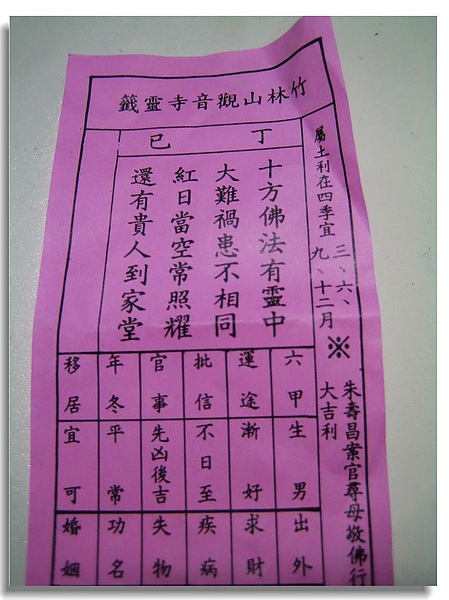 竹林山觀音寺靈籤
丁巳
屬土利在四季宜三、六、九、十二月
※
朱壽昌案官尋母敬佛行
大吉利
十方佛法有靈中
大難禍患不相同
紅日當空常照耀
還有貴人到家堂
六甲生男
運途漸好
批信不日至
官事先凶後吉
年冬平常
移居宜可
出外
求財
疾病
失物
功名
婚姻